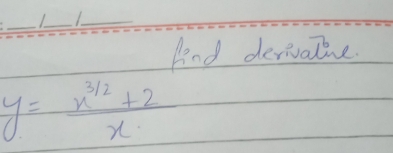 find derivative.
y = x^{3/2} + 2 / x.